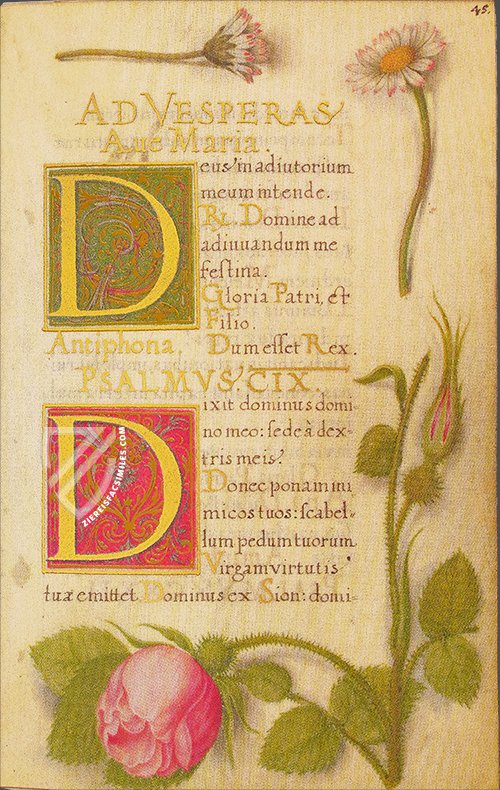 45.
AD VESPERAS
Aue Maria.
Deus in adiutorium
meum intende.
R. Domine ad
adiuuandum me
festina.
Gloria Patri, et
Filio.
Antiphona. Dum esset Rex.
PSALMVS, CIX.
Dixit dominus domi-
no meo: sede à dex-
tris meis.
Donec ponam ini
micos tuos: scabel-
lum pedum tuorum
Virgam virtutis
tuæ emittet Dominus ex Sion: domi-
ZIEREISFACSIMILES.COM